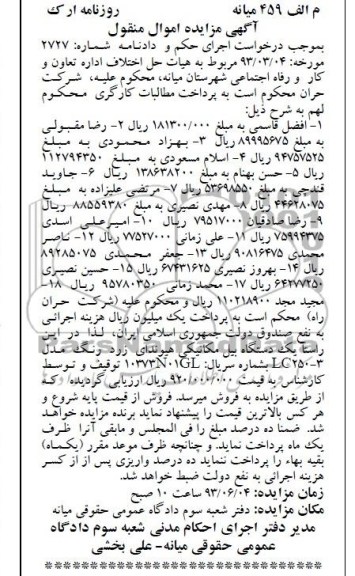 م الف ۴۵۹ میانه روزنامه ارک
آگهی مزایده اموال منقول
بموجب درخواست اجرای حکم و دادنامه شماره: ۲۷۲۷
مورخه: ۹۳/۰۳/۰۴ مربوط به هیات حل اختلاف اداره تعاون و
کار و رفاه اجتماعی شهرستان میانه، محکوم علیه، شرکت
حران محکوم است به پرداخت مطالبات کارگری محکوم
لهم به شرح ذیل:
۱- افضل قاسمی به مبلغ ۱۸۱۳۰۰/۰۰۰ ریال ۲- رضا مقبولی
به مبلغ ۸۹۹۹۵۶۷۵ ریال ۳- بهزاد محمودی به مبلغ
۹۴۷۵۷۵۲۵ ریال ۴- اسلام مسعودی به مبلغ ۱۱۲۷۹۴۳۵۰
ریال ۵- حسن بهنام به مبلغ ۱۳۸۶۳۸۲۰۰ ریال ۶- جاوید
قندچی به مبلغ ۵۳۶۹۸۵۵۰ ریال ۷- مرتضی علیزاده به مبلغ
۴۴۶۲۸۰۷۵ ریال ۸- مهدی نصیری به مبلغ ۸۸۵۵۹۳۸۰ ریال
۹- رضا صادقیان ۷۹۵۱۷۰۰۰ ریال ۱۰- امیرعلی اسدی
۷۵۹۹۴۳۷۵ ریال ۱۱- علی زمانی ۷۷۵۲۷۰۰۰ ریال ۱۲- ناصر
محمدی ۹۰۸۱۶۴۷۵ ریال ۱۳- جعفر محمدی ۸۹۲۸۵۰۷۵
ریال ۱۴- بهروز نصیری ۶۷۴۳۱۶۲۵ ریال ۱۵- حسین نصیری
۶۴۲۷۷۲۵۰ ریال ۱۷- محمد زمانی ۹۵۷۸۰۳۵۰ ریال ۱۸-
مجید مجد ۱۱۰۲۱۸۹۰۰ ریال و محکوم علیه (شرکت حران
راه) محکوم است به پرداخت یک میلیون ریال هزینه اجرائی
به نفع صندوق دولت جمهوری اسلامی ایران، لذا در این
راستا یک دستگاه بیل مکانیکی هیوندای زرد رنگ مدل
LC۲۵۰-۳ بشماره سریال: ۱۰۳۷۳N۰۱GL توقیف و توسط
کارشناس به قیمت ۹۲۰/۰۰۰/۰۰۰ ریال ارزیابی گردیده که
از طریق مزایده به فروش میرسد. فروش از قیمت پایه شروع و
هر کس بالاترین قیمت را پیشنهاد نماید برنده مزایده خواهد
شد. ضمنا ده درصد مبلغ را فی المجلس و مابقی آنرا ظرف
یک ماه پرداخت نماید. و چنانچه ظرف موعد مقرر (یکماه)
بقیه بهاء را پرداخت ننماید ده درصد واریزی پس از از کسر
هزینه اجرائی به نفع دولت ضبط خواهد شد.
زمان مزایده: ۹۳/۰۶/۰۴ ساعت ۱۰ صبح
مکان مزایده: دفتر شعبه سوم دادگاه عمومی حقوقی میانه
مدیر دفتر اجرای احکام مدنی شعبه سوم دادگاه
عمومی حقوقی میانه- علی بخشی